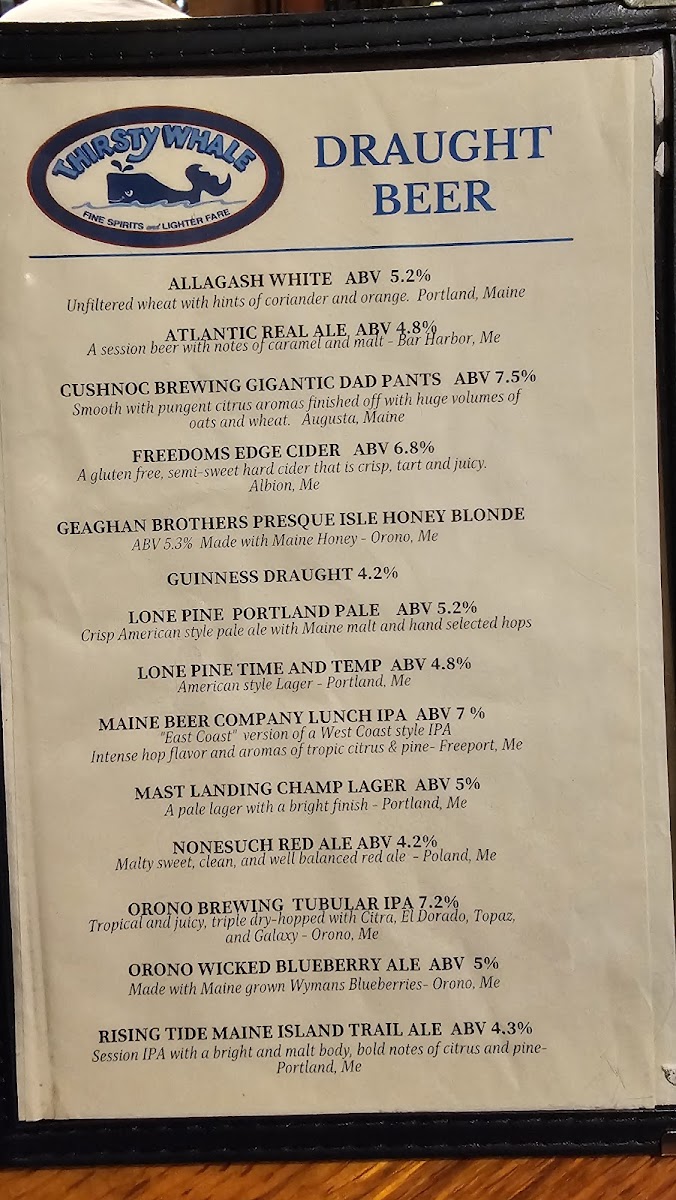 THIRSTY WHALE
FINE SPIRITS and LIGHTER FARE
DRAUGHT
BEER
ALLAGASH WHITE ABV 5.2%
Unfiltered wheat with hints of coriander and orange. Portland, Maine
ATLANTIC REAL ALE ABV 4.8%
A session beer with notes of caramel and malt - Bar Harbor, Me
CUSHNOC BREWING GIGANTIC DAD PANTS ABV 7.5%
Smooth with pungent citrus aromas finished off with huge volumes of
oats and wheat. Augusta, Maine
FREEDOMS EDGE CIDER ABV 6.8%
A gluten free, semi-sweet hard cider that is crisp, tart and juicy.
Albion, Me
GEAGHAN BROTHERS PRESQUE ISLE HONEY BLONDE
ABV 5.3% Made with Maine Honey - Orono, Me
GUINNESS DRAUGHT 4.2%
LONE PINE PORTLAND PALE ABV 5.2%
Crisp American style pale ale with Maine malt and hand selected hops
LONE PINE TIME AND TEMP ABV 4.8%
American style Lager - Portland, Me
MAINE BEER COMPANY LUNCH IPA ABV 7 %
"East Coast" version of a West Coast style IPA
Intense hop flavor and aromas of tropic citrus & pine- Freeport, Me
MAST LANDING CHAMP LAGER ABV 5%
A pale lager with a bright finish - Portland, Me
NONESUCH RED ALE ABV 4.2%
Malty sweet, clean, and well balanced red ale - Poland, Me
ORONO BREWING TUBULAR IPA 7.2%
Tropical and juicy, triple dry-hopped with Citra, El Dorado, Topaz,
and Galaxy - Orono, Me
ORONO WICKED BLUEBERRY ALE ABV 5%
Made with Maine grown Wymans Blueberries- Orono, Me
RISING TIDE MAINE ISLAND TRAIL ALE ABV 4.3%
Session IPA with a bright and malt body, bold notes of citrus and pine-
Portland, Me